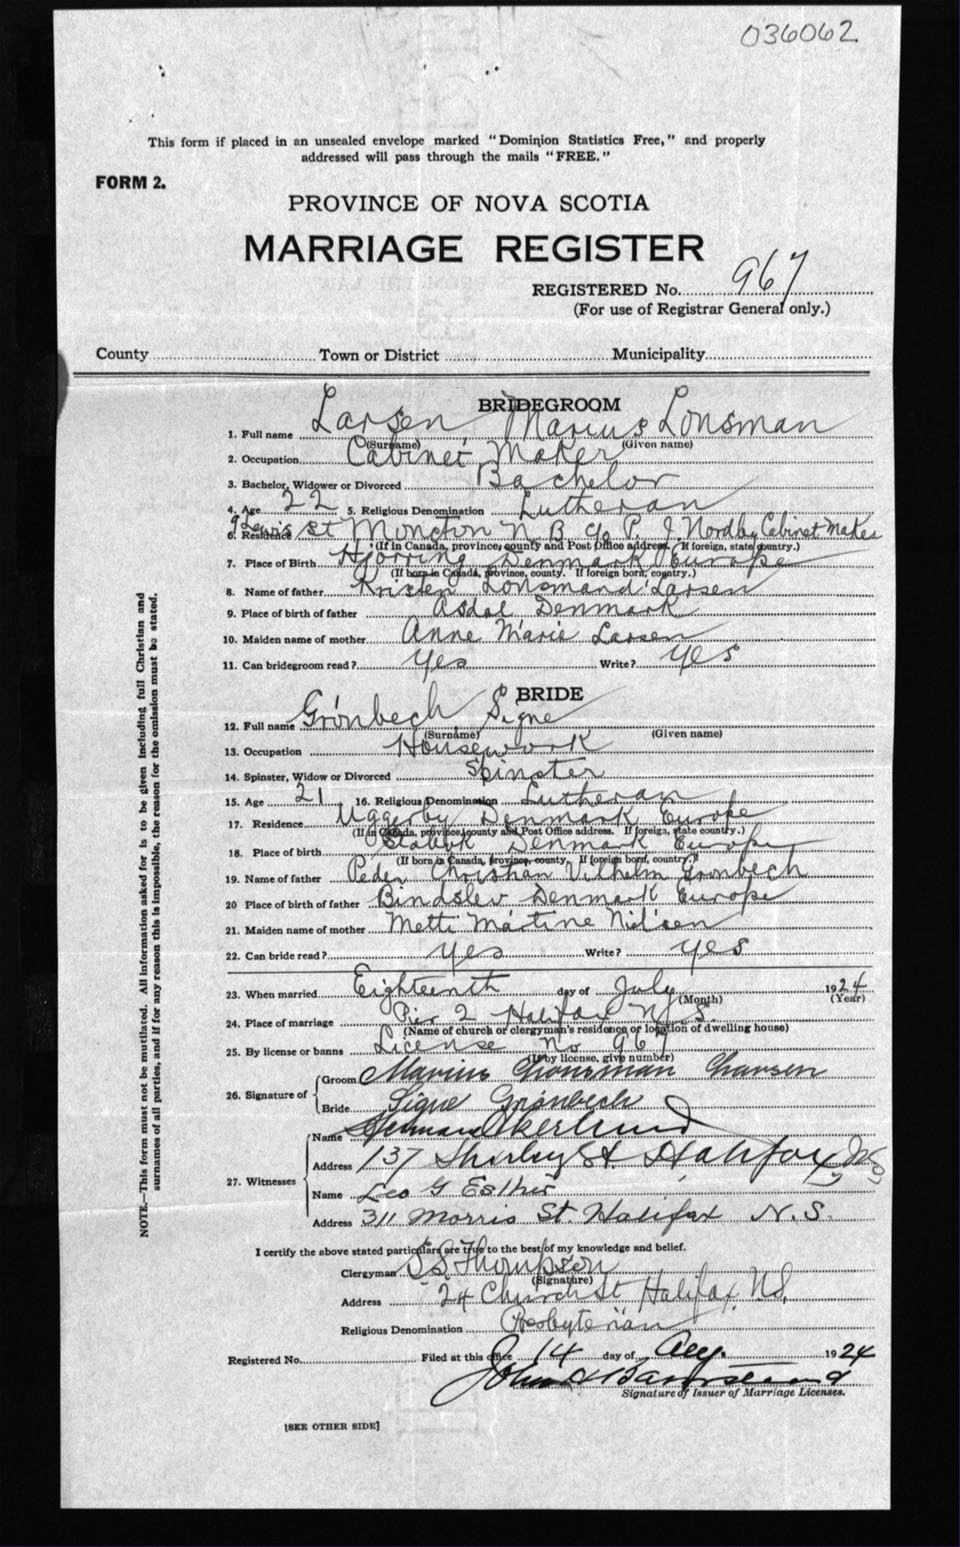 036062
This form if placed in an unsealed envelope marked "Dominion Statistics Free," and properly
addressed will pass through the mails "FREE."
FORM 2.
PROVINCE OF NOVA SCOTIA
MARRIAGE REGISTER
REGISTERED No. 967
(For use of Registrar General only.)
County Town or District Municipality
BRIDEGROOM
1. Full name Larsen Marius Lonsman
(Surname) (Given name)
2. Occupation Cabinet Maker
3. Bachelor, Widower or Divorced Bachelor
4. Age 22 5. Religious Denomination Lutheran
6. Residence 9 Lewis St Moncton N.B. c/o P. J. Nordby Cabinet Maker
(If in Canada, province, county and Post Office address. If foreign, state country.)
7. Place of Birth Hjorring Denmark Europe
(If born in Canada, province, county. If foreign born, country.)
8. Name of father Kristen Lonsmand Larsen
9. Place of birth of father Asdal Denmark
10. Maiden name of mother Anne Marie Larsen
11. Can bridegroom read? yes Write? yes
BRIDE
12. Full name Grönbech Signe
(Surname) (Given name)
13. Occupation Housework
14. Spinster, Widow or Divorced Spinster
15. Age 21 16. Religious Denomination Lutheran
17. Residence Uggerby Denmark Europe
(If in Canada, province, county and Post Office address. If foreign, state country.)
18. Place of birth Denmark Europe
(If born in Canada, province, county. If foreign born, country.)
19. Name of father Peder Christian Vilhelm Gronbech
20 Place of birth of father Bindslev Denmark Europe
21. Maiden name of mother Metti Martine Nielsen
22. Can bride read? yes Write? yes
23. When married Eighteenth day of July 1924
(Month) (Year)
24. Place of marriage Pier 2 Halifax N.S.
(Name of church or clergyman's residence or location of dwelling house)
25. By license or banns License No 967
(If by license, give number)
26. Signature of Groom Marius Lonsman Larsen
Bride Signe Grönbech
27. Witnesses Name Akerlund
Address 137 Shirley St. Halifax N.S.
Name Leo G Esthir
Address 311 Morris St. Halifax N.S.
I certify the above stated particulars are true to the best of my knowledge and belief.
Clergyman Thompson
(Signature)
Address 24 Church St Halifax N.S.
Religious Denomination Presbyterian
Registered No. Filed at this office 14 day of Aug. 1924
John
Signature of Issuer of Marriage Licenses.
[SEE OTHER SIDE]
NOTE.—This form must not be mutilated. All information asked for is to be given including full Christian and
surnames of all parties, and if for any reason this is impossible, the reason for the omission must be stated.